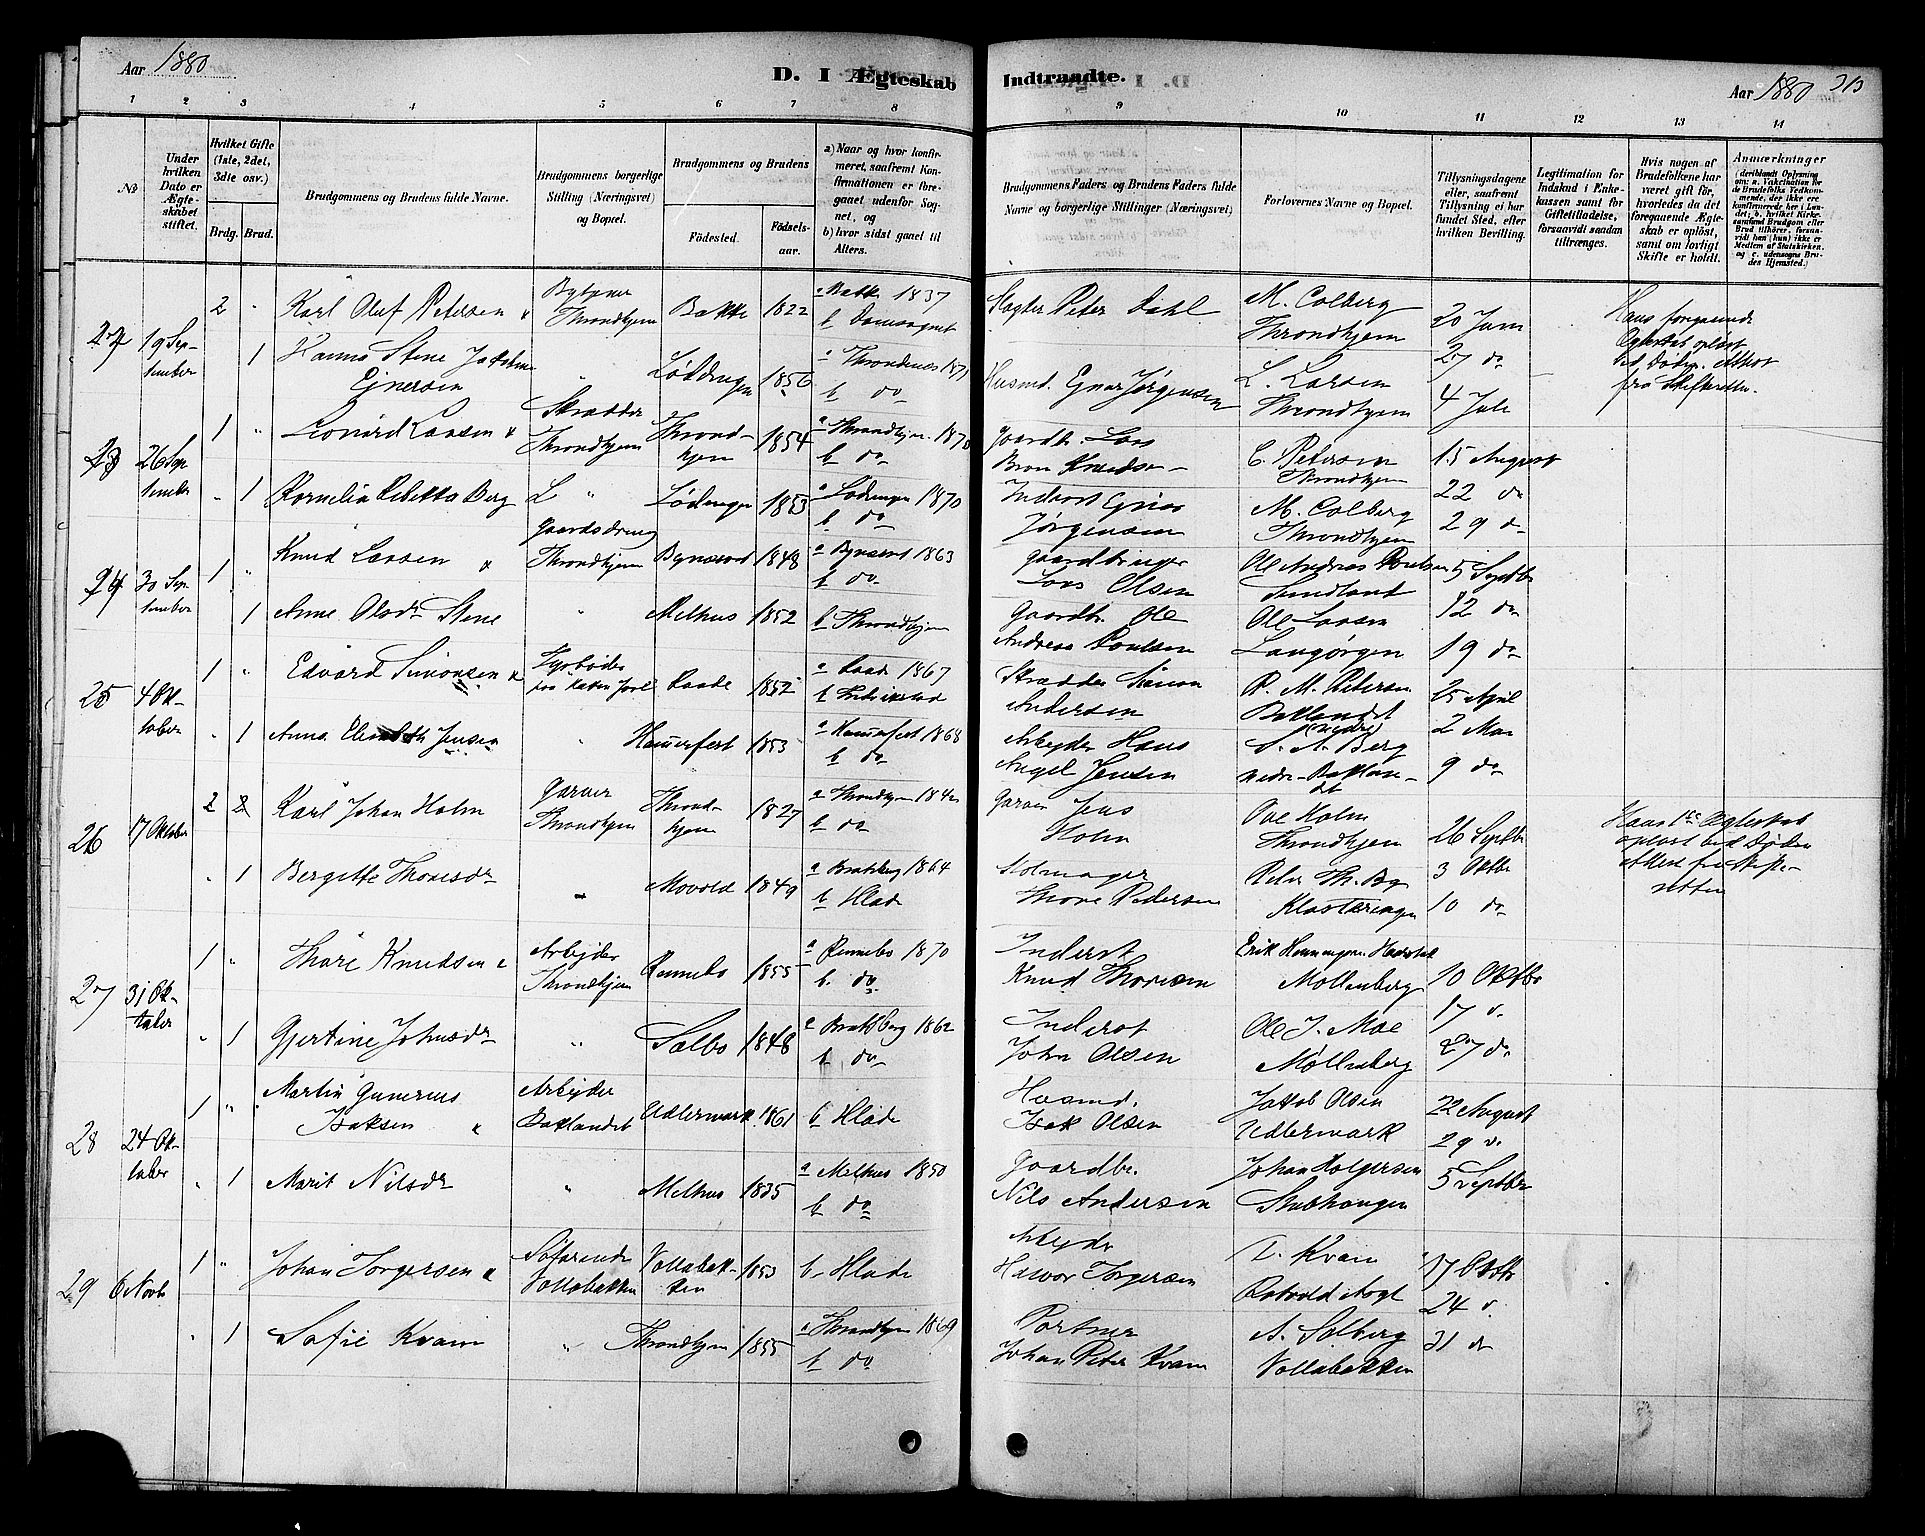 Aar 1880
D. I Ægteskab
1 2 3 4 5 6 7 8
No
Under hvilken Dato er Ægteskabet stiftet.
Hvilket Gifte (1ste, 2det, 3die osv.)
Brdg. Brud.
Brudgommens og Brudens fulde Navne.
Brudgommens borgerlige Stilling (Næringsvei) og Bopæl.
Brudgommens og Brudens
Fødested.
Fødselsaar.
a) Naar og hvor konfirmeret, saafremt Konfirmationen er foregaaet udenfor Sognet, og
b) hvor sidst gaaet til Alters.
19 September
2 " Karl Oluf Petersen Throndhjem Bakke 1822 a Bakke 1837
b Domsognet
1 Hanna Stene Jakobine Ejnersen " Lødingen 1856 a Throndenes 1871
b do
23 26 September
1 " Leonard Larsen Skrædder Throndhjem Throndhjem 1854 a Throndhjem 1870
b do
" 1 Kornelia Rebekka Berg " Lødingen 1853 a Lødingen 1870
b do
24 30 September
1 " Knud Larsen Gaardsdreng Throndhjem Bynesset 1848 a Bynesset 1863
b do
1 Anne Olsdr Stene " Melhus 1852 b Throndhjem
25 4 Oktober
1 " Edvard Simonsen Fyrbøder Raade 1852 a Raade 1867
b Fredrikstad
" 1 Anna Elisabeth Jensen " Hammerfest 1853 a Hammerfest 1868
b do
26 17 Oktober
2 Karl Johan Holm Garver Throndhjem Throndhjem 1827 a Throndhjem 1842
b do
" 1 Bergitte Thoresdr " Movold 1849 a Bratsberg 1864
b Hlade
27 31 Oktober
1 " Thore Knudsen Arbejder Throndhjem Rennebo 1855 a Rennebo 1870
b do
" 1 Gjertine Johnsdr " Selbo 1848 a Bratsberg 1862
b do
28 24 Oktober
1 " Martin Gunerius Isaksen Arbejder Baklandet Udlermark 1861 b Hlade
" 1 Marit Nilsdr " Melhus 1835 a Melhus 1850
b do
29 6 Novb
1 " Johan Torgersen Sofarende Vollabakken Vollabakken 1853 b Hlade
" 1 Sofie Kvam " Throndhjem 1855 a Throndhjem 1869
b do
Indtraadte.
Aar 1880 313
9 10 11 12 13 14
Brudgommens Faders og Brudens Faders fulde Navne og borgerlige Stillinger (Næringsvei)
Forlovernes Navne og Bopæl.
Tillysningsdagene eller, saafremt Tillysning ei har fundet Sted, efter hvilken Bevilling.
Legitimation for Indskud i Enkekassen samt for Giftetilladelse, forsaavidt saadan tiltrænges.
Hvis nogen af Brudefolkene har været gift før, hvorledes da det foregaaende Ægteskab er opløst, samt om lovligt Skifte er holdt.
Anmærkninger
(deriblandt Oplysning om: a. Vakcination for de Brudefolks Vedkommende, der ikke ere konfirmerede her i Landet; b. hvilket Kirkesamfund Brudgom eller Brud tilhører, forsaavidt han (hun) ikke er Medlem af Statskirken, og c. udensogns Brudes Hjemsted.)
Slagter Peter Dahl M. Colberg Throndhjem 20 Juni
27 do
Hans foregaaende Ægteskab opløst ved Døden. Attest fra Skifteretten.
Husmd. Ejnar Jørgensen L. Larsen Throndhjem 4 Juli
Gaardbr. Lars Knudsen C. Petersen Throndhjem 15 August
22 do
Inderst Ejnar Jørgensen M. Colberg Throndhjem 29 do
Gaardbruger Lars Olsen Ole Andreas Poulsen Sundland 5 Septbr
12 do
Gaardbr. Ole Andreas Poulsen Ole Larsen Langørgen 19 do
Skrædder Simon Andersen P. M. Petersen Baklandet 25 April
2 Mai
Arbejder Hans Angel Jensen S. A. Berg nedre Baklandet 9 do
Garver Jens Holm Ove Holm Throndhjem 26 Septbr
3 Oktbr
Hans 1ste Ægteskab opløst ved Døden Attest fra Skifteretten
Thore Pedersen Peter Th. By Klosteringen 10 do
Inderst Knud Thoresen Erik Henningsen Mollenberg 10 Oktbr
17 do
Inderst John Olsen Ole J. Moe Møllenberg 27 do
Husmd. Isak Olsen Jakob Olsen Udlermark 22 August
29 do
Gaardbr. Nils Andersen Johan Holgersen Stubhaugen 5 Septbr
Arbejder Halvor Torgersen T. Kvam 17 Oktbr
24 do
Portner Johan Peter Kvam A. Solberg Vollabakken 31 do